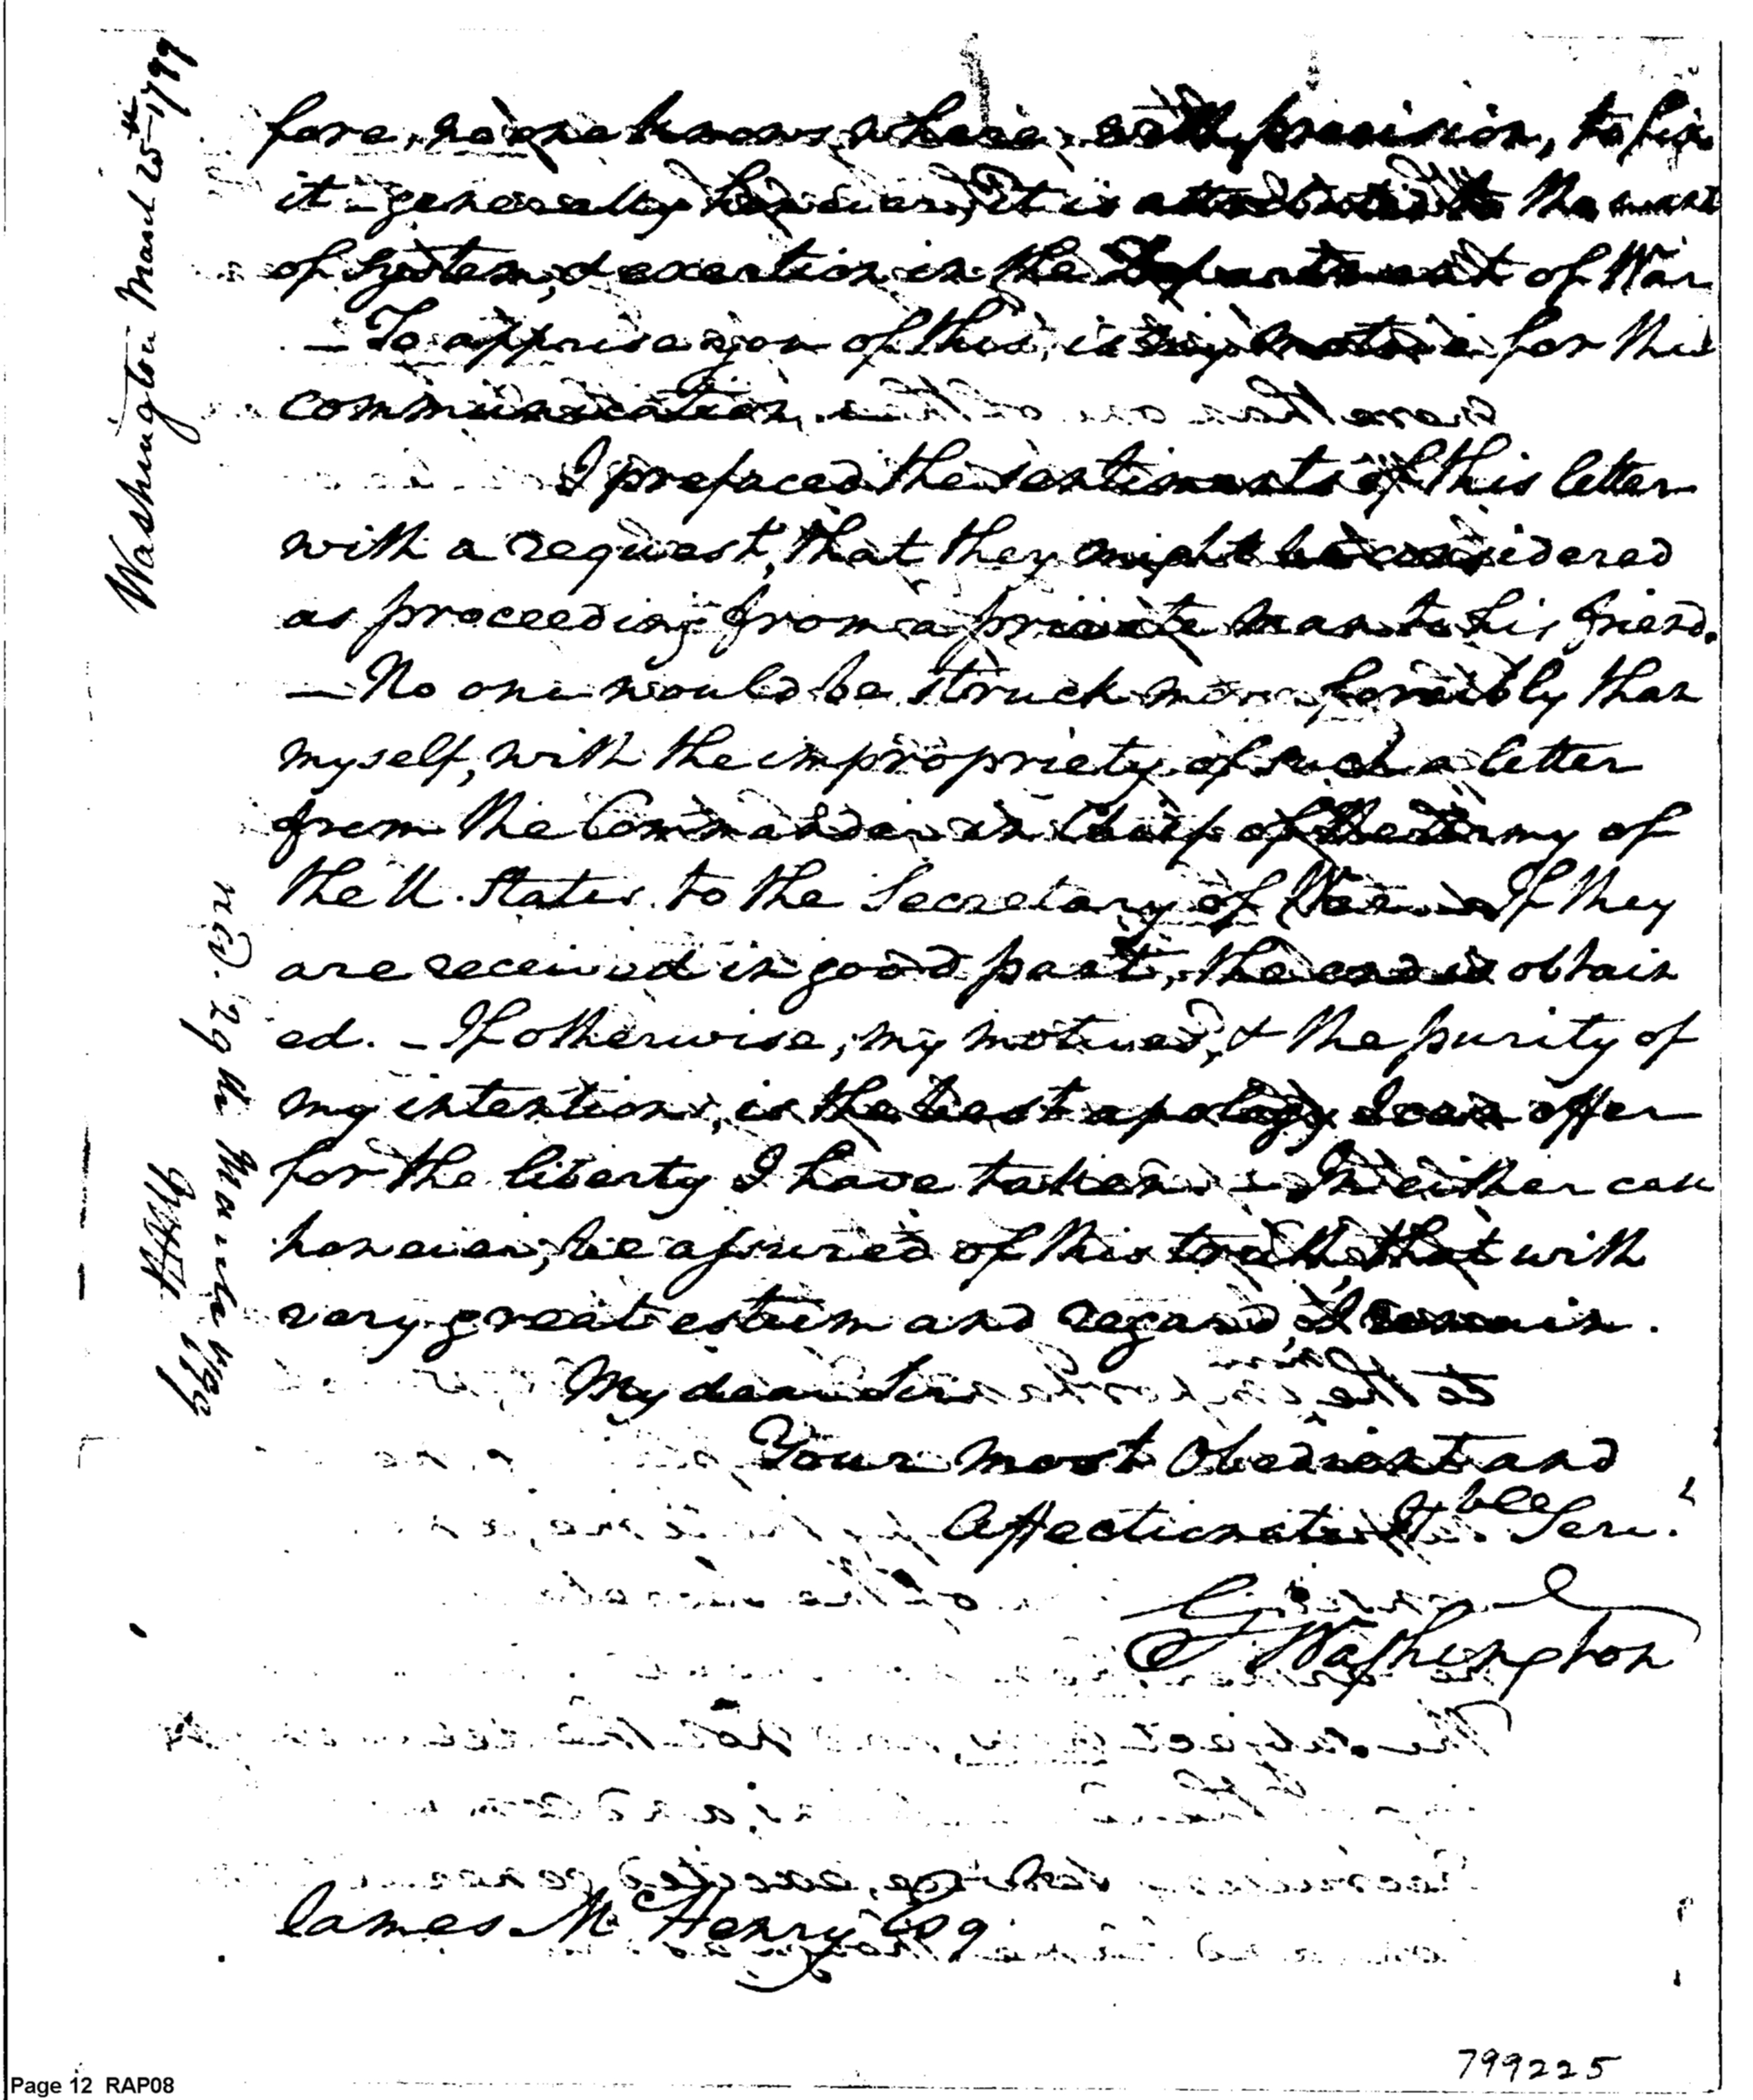 fore, no one knows where, with precision, to fix
it - generally however, it is attributed to the want
of System, & exertion in the Department of War
— To apprise you of this, is my motive for this
communication.
I prefaced the sentiments of this letter
with a request, that they might be considered
as proceeding from a private man to his friend.
— No one would be struck more forcibly than
myself, with the impropriety of such a letter
from the Commander in Chief of the Army of
the U. States to the Secretary of War. — If they
are received in good part, the end is obtain
ed. — If otherwise, my motives, & the purity of
my intentions, is the best apology I can offer
for the liberty I have taken. — In either case
however, be assured of this truth, that with
very great esteem and regard, I remain.
My dear Sir
Your most Obedient and
Affectionate Hble Serv.
G. Washington
James McHenry Esq
Washington March 25th 1799
recd. 29th March 1799
799225
Page 12 RAP08